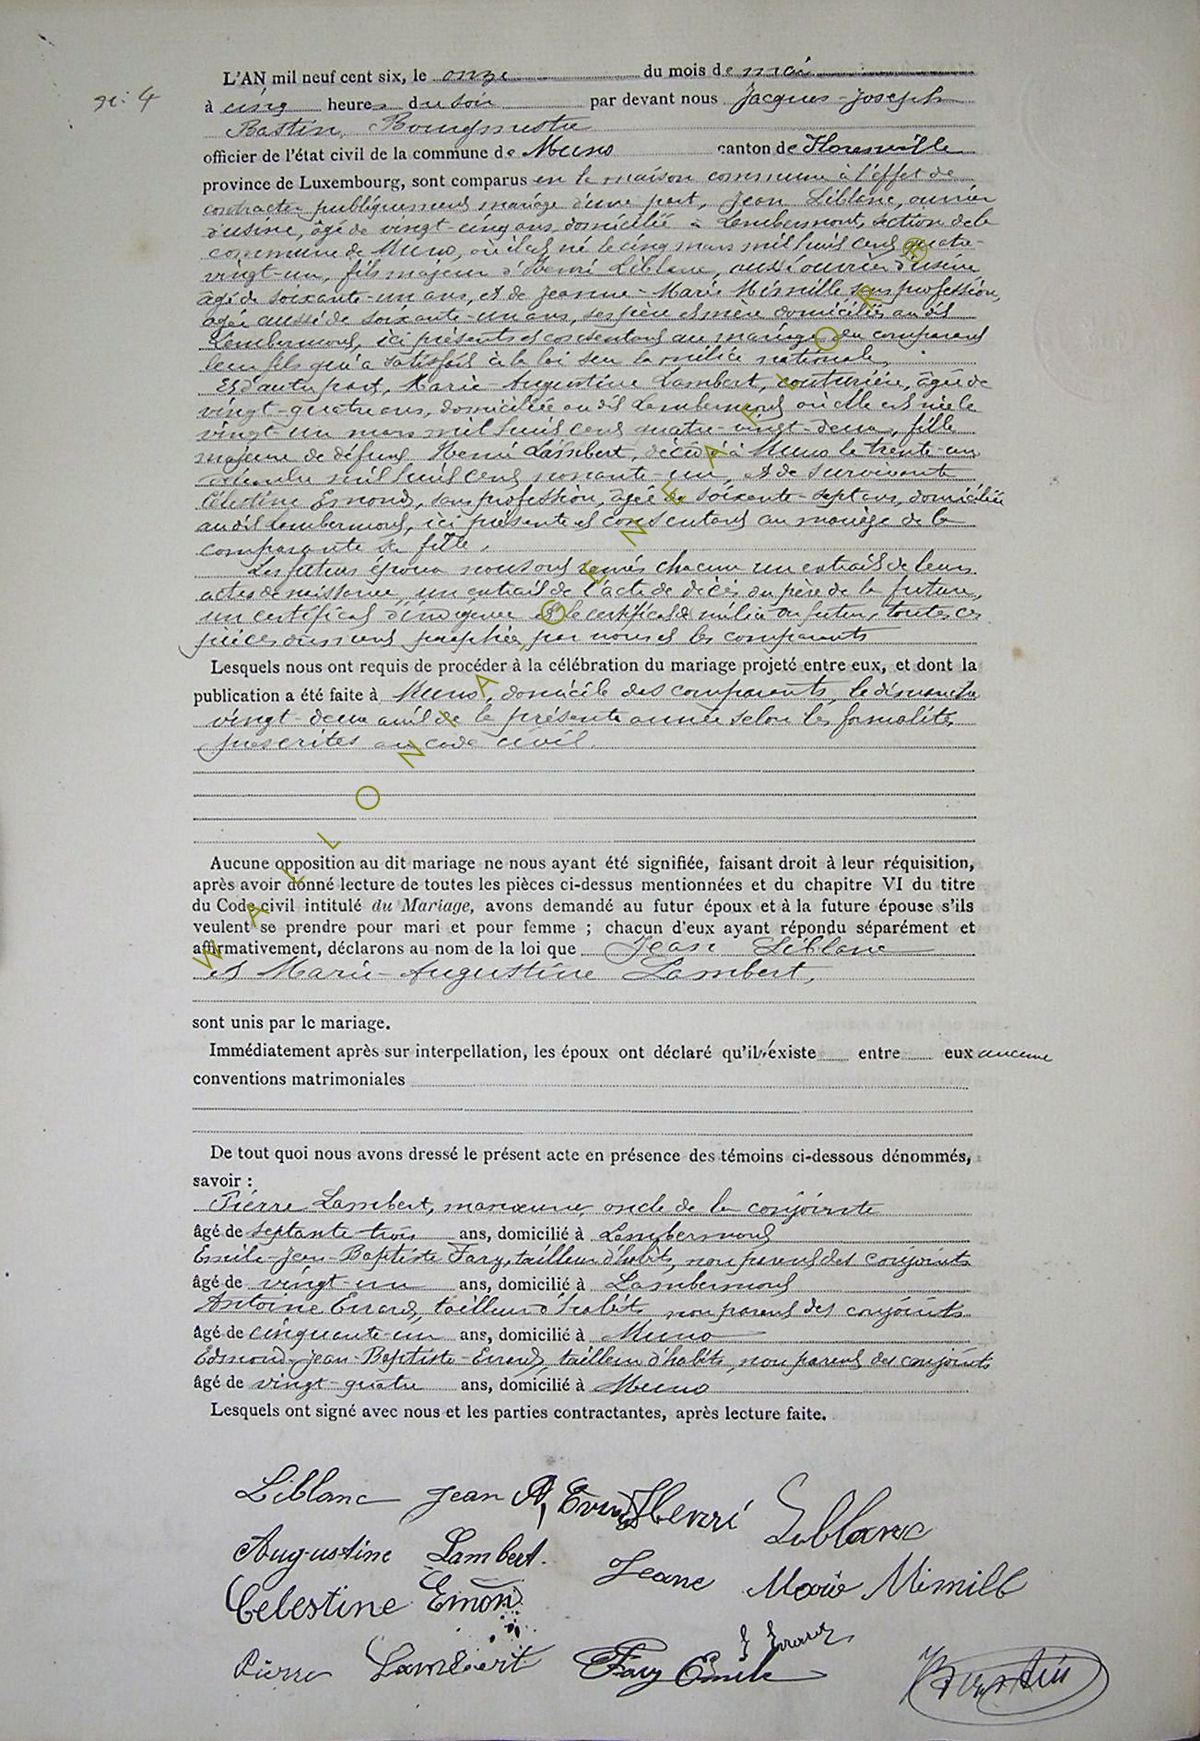 L'AN mil neuf cent six, le onze du mois de mai
n: 4
à cinq heures du soir par devant nous Jacques-Joseph
Bastin, Bourgmestre
officier de l'état civil de la commune de Muno canton de Florenville
province de Luxembourg, sont comparus en la maison commune à l'effet de
contracter publiquement mariage d'une part, Jean Liblanc, ouvrier
d'usine, âgé de vingt-cinq ans, domicilié à Lambermont, section de la
commune de Muno, où il est né le cinq mars mil huit cent quatre-
vingt-un, fils majeur d'Henri Liblanc, aussi ouvrier d'usine
âgé de soixante-un ans, et de Jeanne-Marie Mernille sans profession,
âgée aussi de soixante-un ans, ses père et mère domiciliés au dit
Lambermont, ici présents et consentant au mariage du comparant
leur fils qui a satisfait à la loi sur la milice nationale,
Et d'autre part, Marie-Augustine Lambert, couturière, âgée de
vingt-quatre ans, domiciliée au dit Lambermont où elle est née le
vingt-un mars mil huit cent quatre-vingt-deux, fille
majeure de défunt Henri Lambert, décédé à Muno le trente-un
mil huit cent nonante-un, et de survivante
Célestine Emond, sans profession, âgée de soixante-sept ans, domiciliée
au dit Lambermont, ici présente et consentant au mariage de la
comparante sa fille.
Les futurs époux nous ont remis chacun un extrait de leurs
actes de naissance, un extrait de l'acte de décès du père de la future,
un certificat d'indigence et le certificat de milice du futur, toutes ces
pièces dûment paraphées par nous et les comparants
Lesquels nous ont requis de procéder à la célébration du mariage projeté entre eux, et dont la
publication a été faite à Muno, domicile des comparants, le dimanche
vingt-deux avril de la présente année selon les formalités
prescrites au code civil.
Aucune opposition au dit mariage ne nous ayant été signifiée, faisant droit à leur réquisition,
après avoir donné lecture de toutes les pièces ci-dessus mentionnées et du chapitre VI du titre
du Code civil intitulé du Mariage, avons demandé au futur époux et à la future épouse s'ils
veulent se prendre pour mari et pour femme ; chacun d'eux ayant répondu séparément et
affirmativement, déclarons au nom de la loi que Jean Liblanc
et Marie-Augustine Lambert,
sont unis par le mariage.
Immédiatement après sur interpellation, les époux ont déclaré qu'il n'existe entre eux aucune
conventions matrimoniales
De tout quoi nous avons dressé le présent acte en présence des témoins ci-dessous dénommés,
savoir :
Pierre Lambert, manœuvre, oncle de la conjointe
âgé de septante trois ans, domicilié à Lambermont
Emile-Jean-Baptiste Fary, tailleur d'habits, non parent des conjoints
âgé de vingt-un ans, domicilié à Lambermont
Antoine Errard, tailleur d'habits non parent des conjoints
âgé de cinquante-un ans, domicilié à Muno
Edmond-Jean-Baptiste-Errard, tailleur d'habits, non parent des conjoints
âgé de vingt-quatre ans, domicilié à Muno
Lesquels ont signé avec nous et les parties contractantes, après lecture faite.
Liblanc Jean A, Henri Liblanc
Augustine Lambert. Jeane Marie Mernille
Celestine Emond
Pierre Lambert Fary Emile Bastin
WALLONIA, GENEAFLOR ®